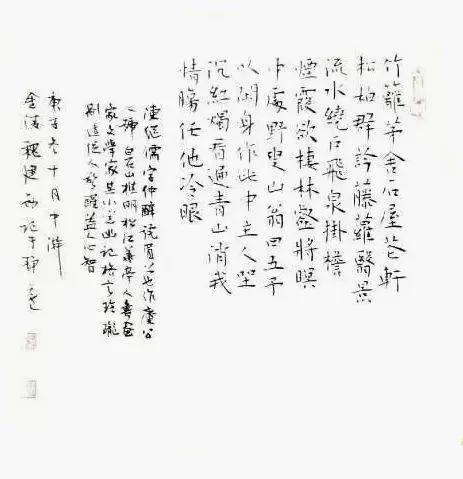 竹籬茅舍石屋花軒
松柏群吟藤蘿翳景
流水繞戶飛泉掛檐
煙霞欲棲林壑將暝
中處野叟山翁四五予
以閑身作此中主人坐
沉紅燭看遍青山消我
情腸任他冷眼
陳繼儒字仲醇號眉公也作麋公
又號白石山樵明松江華亭人書畫
家文學家其小窗幽記格言玲瓏
剔透促人警醒益人心智
庚子冬十月中浣
魏建西記于靜